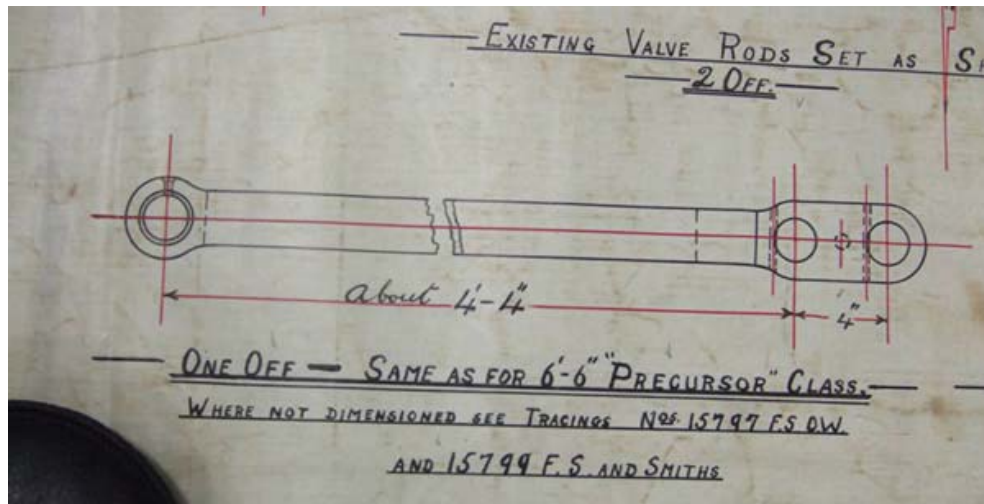 EXISTING VALVE RODS SET AS
2 OFF.
About 4'-4"
4"
ONE OFF — SAME AS FOR 6'-6" "PRECURSOR" CLASS.
WHERE NOT DIMENSIONED SEE TRACINGS NOS. 15797 F.S O.W.
AND 15799 F.S. AND SMITHS